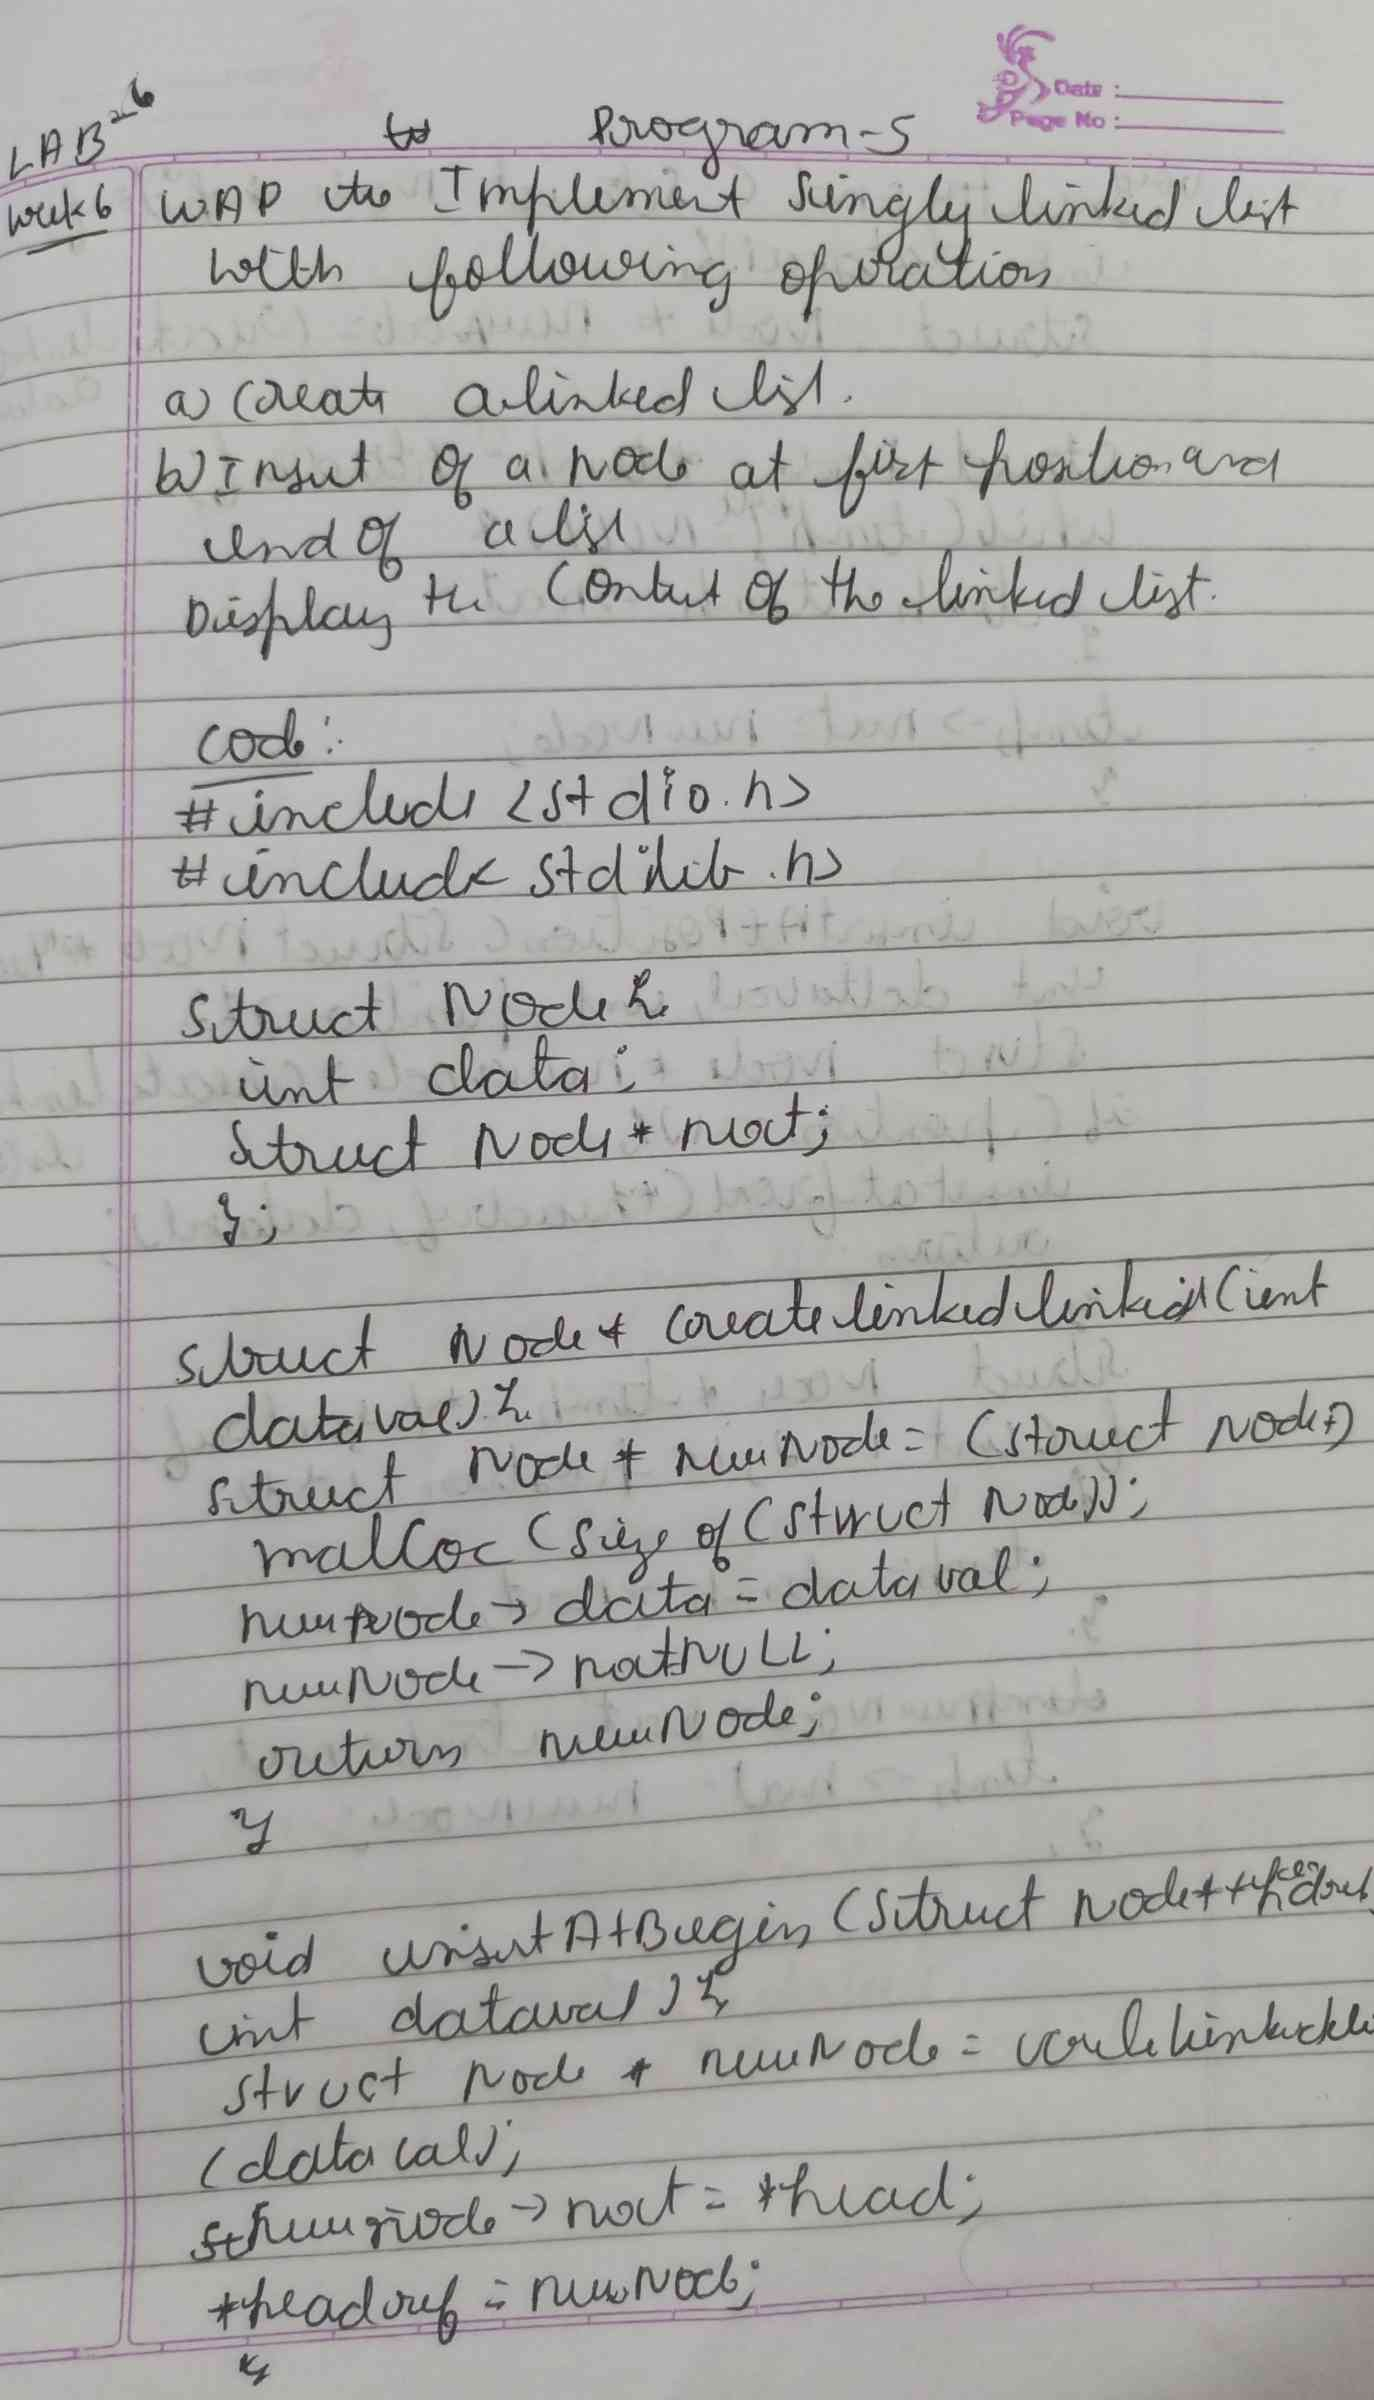 LAB-6
Program-5
Date :
Page No :
Week 6
WAP to Implement Singly linked list
with following operation
a) Create a linked list.
b) Insert of a node at first position and
end of a list
Display the Content of the linked list.
Code:
#include <stdio.h>
#include< stdlib.h>
struct Node {
int data;
struct Node * next;
};
struct Node * createlinkedlinkedlist(int
dataval) {
struct Node * newNode = (struct Node*)
malloc (size of (struct Node));
newNode -> data = dataval;
newNode -> next=NULL;
return newNode;
}
void insertAtBegin (struct Node**headref,
int dataval) {
struct Node * newNode =
(dataval);
newnode -> next = *head;
*headref = newNode;
}